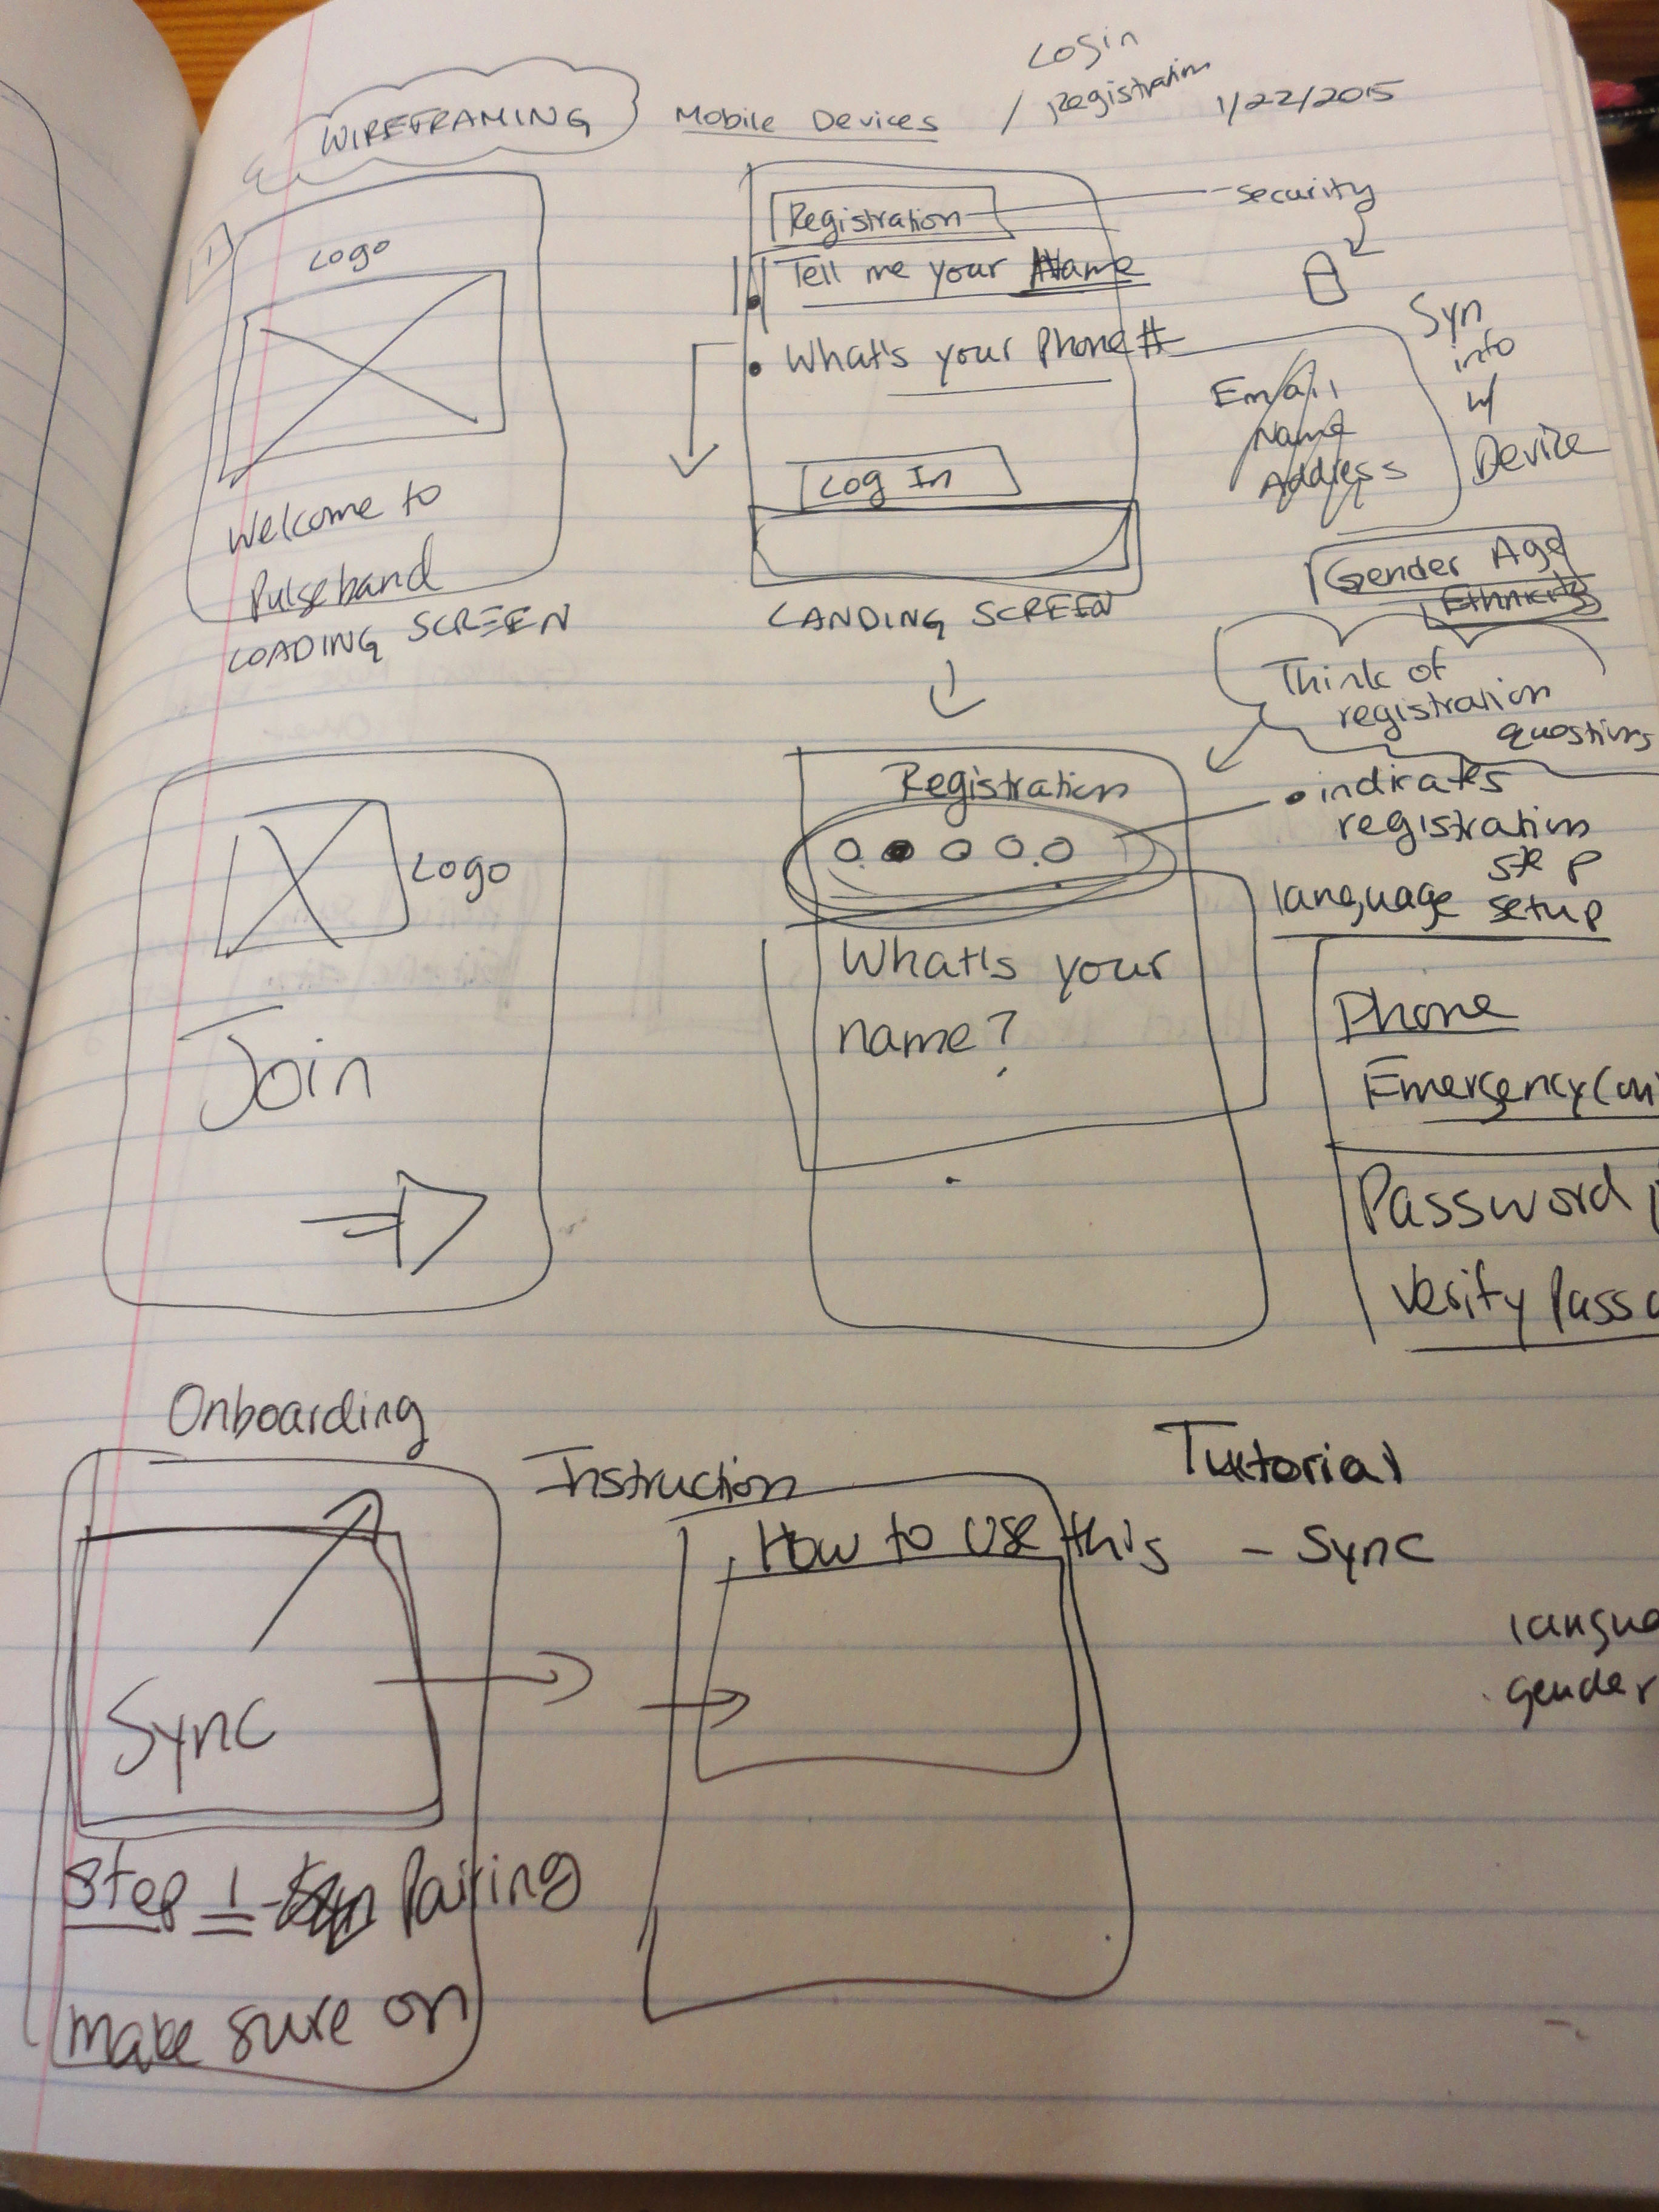 WIREFRAMING Mobile Devices / Login Registration 1/22/2015
1
Logo
Welcome to
Pulseband
LOADING SCREEN
Registration
Tell me your Name
What's your Phone #
Log In
LANDING SCREEN
security
Syn
into
w/
Device
Email
Name
Address
Gender Age
Ethnicity
Think of
registration
questions
Logo
Join
Registration
What's your
name?
• indicates
registration
step
language setup
Phone
Emergency Con
Password
Verify Passw
Onboarding
Sync
Step 1 - Pairing
make sure on
Instruction
How to use this
Tutorial
- Sync
langua
gender